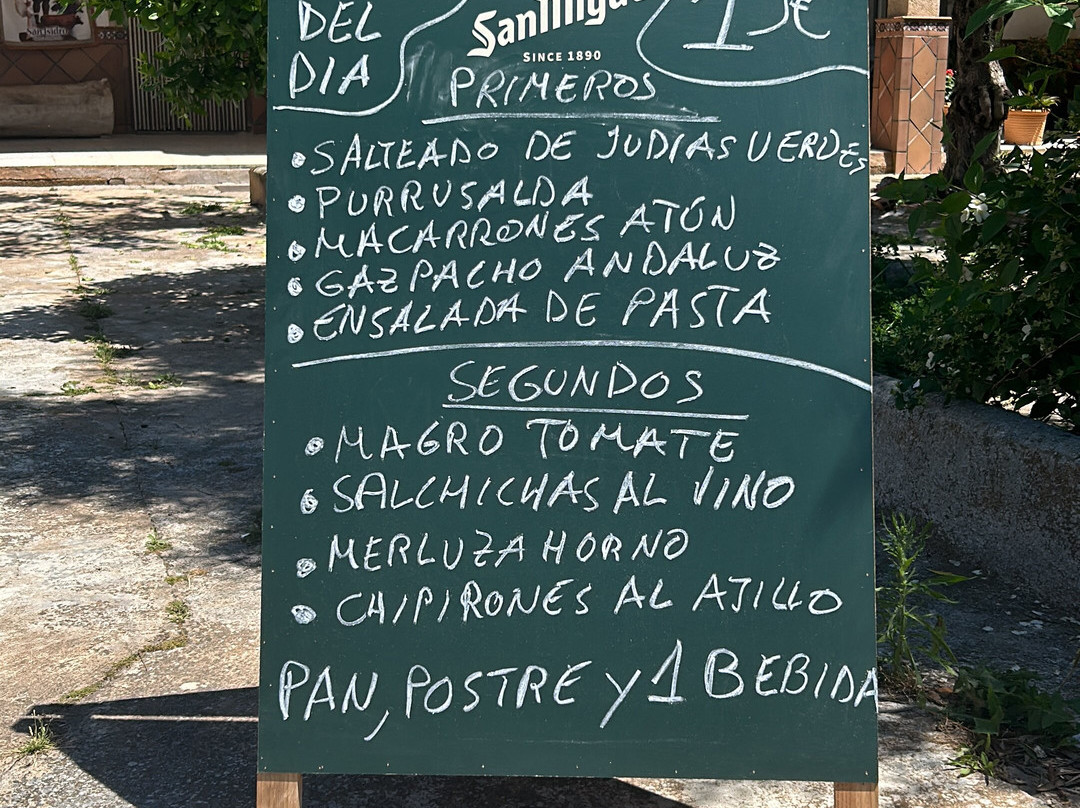 DEL
DIA
SINCE 1890
PRIMEROS
• SALTEADO DE JUDIAS VERDES
• PURRUSALDA
• MACARRONES ATÚN
• GAZPACHO ANDALUZ
• ENSALADA DE PASTA
SEGUNDOS
• MAGRO TOMATE
• SALCHICHAS AL VINO
• MERLUZA HORNO
• CHIPIRONES AL AJILLO
PAN, POSTRE y 1 BEBIDA